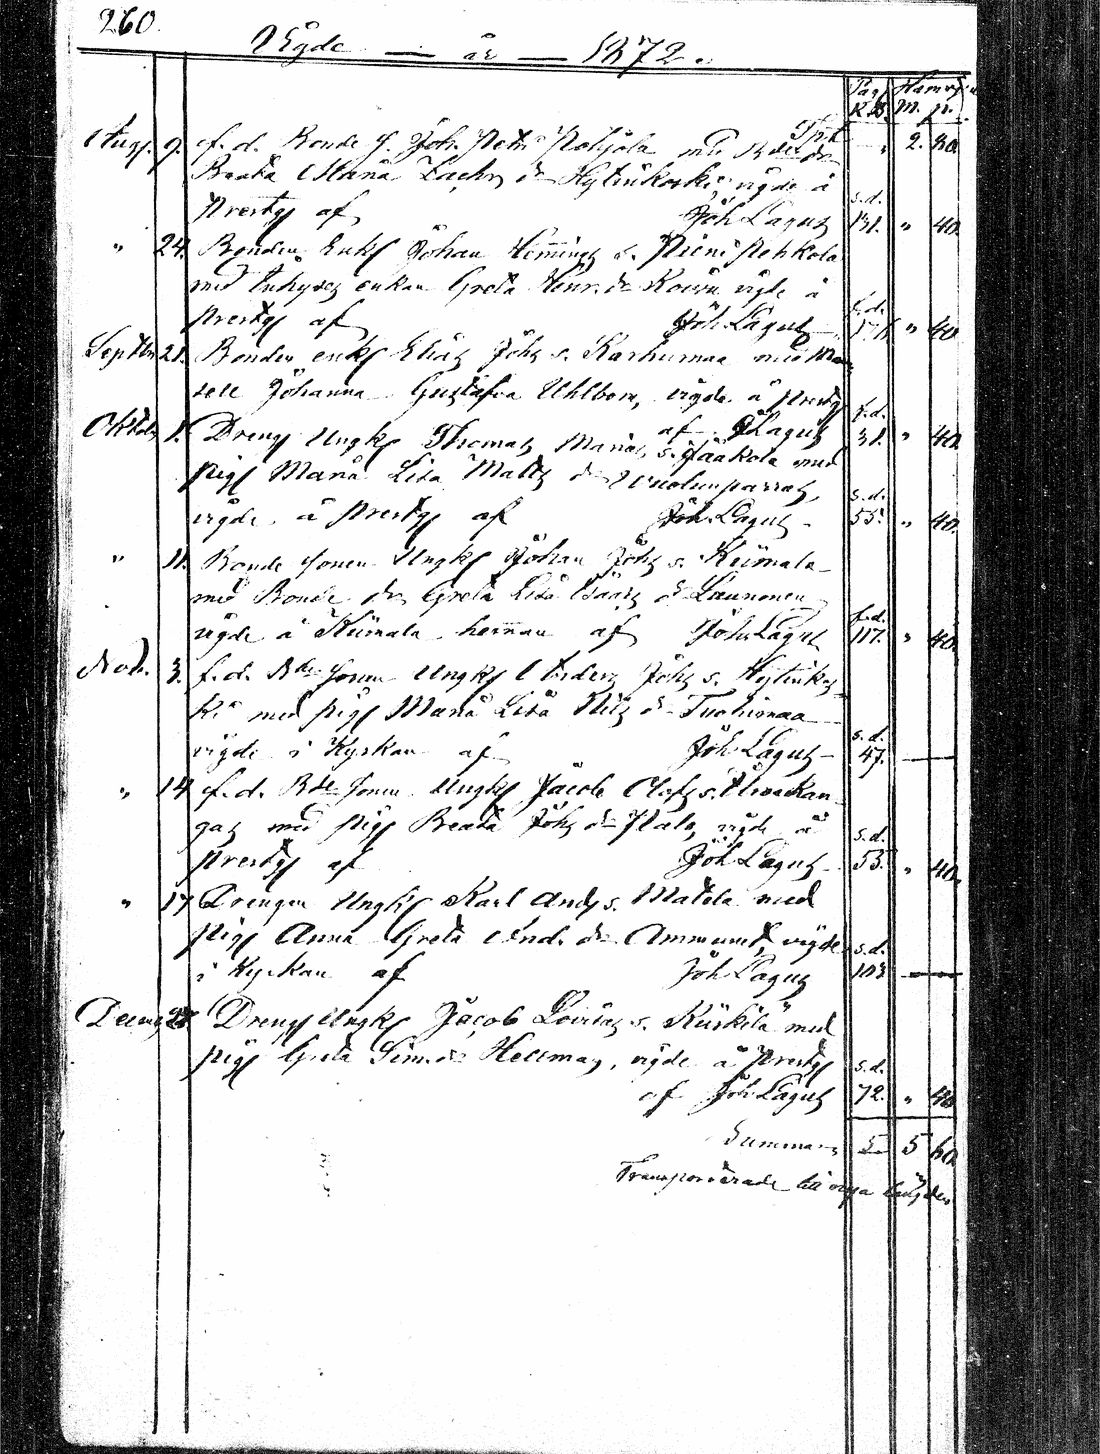 260.
Wigde — år — 1872.
Pag. K.B. M. p.
Trpt
Augs. 9. f. d. Bonde s. Joh. Petri Pohjola med Bde dr „ 2. 80.
Beata Maria Zachr. dr Hytinkoski, vigde å
Prestg af Joh Lagus s.d. 131. „ 40.
„ 24. Bonden Enkl Johan Hemmings s. Pieni Pehkola
med Inhyses enkan Greta Henr. dr Koivu vigde å
Prestg af Joh Lagus f.d. „ 40
Septbr 21. Bonden enkl Elias Johs s. Karhumaa med Mam
sell Johanna Gustafva Uhlbom, vigde å Prestg
af J Lagus f.d. 31. „ 40.
Oktobr 1. Dreng Ungk Thomas s. Jaakola med
pig Maria Lisa Matts dr
vigde å Prestg af Joh Lagus s.d. 55. „ 40.
„ 11. Bonde sonen Ungk Johan Johs s. Keimala
med Bonde dr Greta Lisa Isaaks dr Launonen
vigde å Keimala hemman af Joh Lagus f.d. 117. „ 40
Nov. 3. f. d. Bde sonen Ungk Anders Johs s. Hytinkos
ki med pig Maria Lisa Nils dr Tuohimaa
vigde i Kyrkan af Joh Lagus s.d. 47. —
„ 14 f. d. Bde sonen Ungk Jacob Olofs s.
gas med pig Beata Johs dr Palo, vigde å
Prestg af Joh Lagus s.d. 53. „ 40.
„ 17 Drengen Ungk Karl Ands s. Matela med
pig Anna Greta And. dr Ammunet, vigde
i Kyrkan af Joh Lagus s.d. 103 —
Decemb 28. Dreng Ungk Jacob Lovisas s. Kuiskila med
pig Greta Sim. dr Hellman, vigde å Prestg
af Joh Lagus s.d. 72. „ 40
Summa 5 60
Transporterade till nya